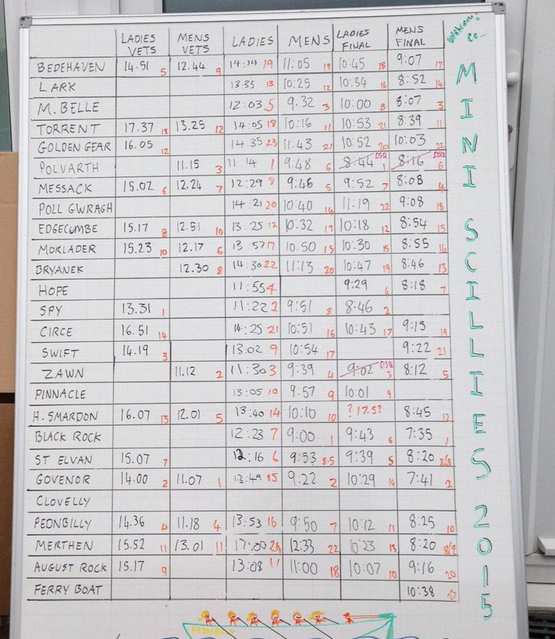 LADIES VETS MENS VETS LADIES MENS LADIES FINAL MENS FINAL
BEDEHAVEN 14.51 5 12.44 9 14:14 19 11.05 19 10:45 18 9:07 17
LARK 13:35 13 10:25 12 10:34 16 8:52 14
M. BELLE 12:03 5 9.32 3 10:00 8 8:07 3
TORRENT 17.37 15 13.25 12 14:05 18 10:16 11 10:53 21 8:39 11
GOLDEN GEAR 16.05 12 14:35 23 11:43 21 10:52 20 10:03 22
POLVARTH 11.15 3 11:14 1 9:48 6 8:44 DSQ 1 8:16 DSQ 6
MESSACK 15.02 6 12.24 7 12:29 8 9:46 5 9:52 7 8:08 4
POLL GWRAGH 14:21 20 10:40 14 11:19 22 9:08 18
EDGECUMBE 15.17 8 12.51 10 13:25 12 10:32 13 10:18 12 8:54 15
MORLADER 15.23 10 12.17 6 13:57 17 10.50 15 10:30 15 8:55 16
BRYANEK 12.30 8 14:30 22 11:13 20 10:47 19 8:46 13
HOPE 11:55 4 9:29 4 8:18 7
SPY 13.31 1 11:22 2 9:51 8 8.46 2
CIRCE 16.51 14 14:25 21 10:51 16 10:43 17 9:15 19
SWIFT 14.19 3 13:02 9 10:54 17 9:22 21
ZAWN 11.12 2 11:30 3 9:39 4 9:02 DSQ 3 8:12 5
PINNACLE 13:05 10 9:57 9 10.01 9
H. SMARDON 16.07 13 12.01 5 13:40 14 10:10 10 8:45 12
BLACK ROCK 12:23 7 9:00 1 9:43 6 7:35 1
ST ELVAN 15.07 7 12.16 6 9:53 8.5 9:39 5 8:20 8/9
GOVENOR 14.00 2 11.07 1 13:49 15 9:22 2 10:29 14 7:41 2
CLOVELLY
PEONBILLY 14.36 4 11.18 4 13:53 16 9:50 7 10:12 11 8:25 10
MERTHEN 15.52 11 13.01 11 17:00 24 12:33 22 10:23 13 8:20 8/9
AUGUST ROCK 15.17 9 13:08 11 11:00 18 10:07 10 9:16 20
FERRY BOAT 10:38 23
MINI SCILLIES 2015
PEONBILLY